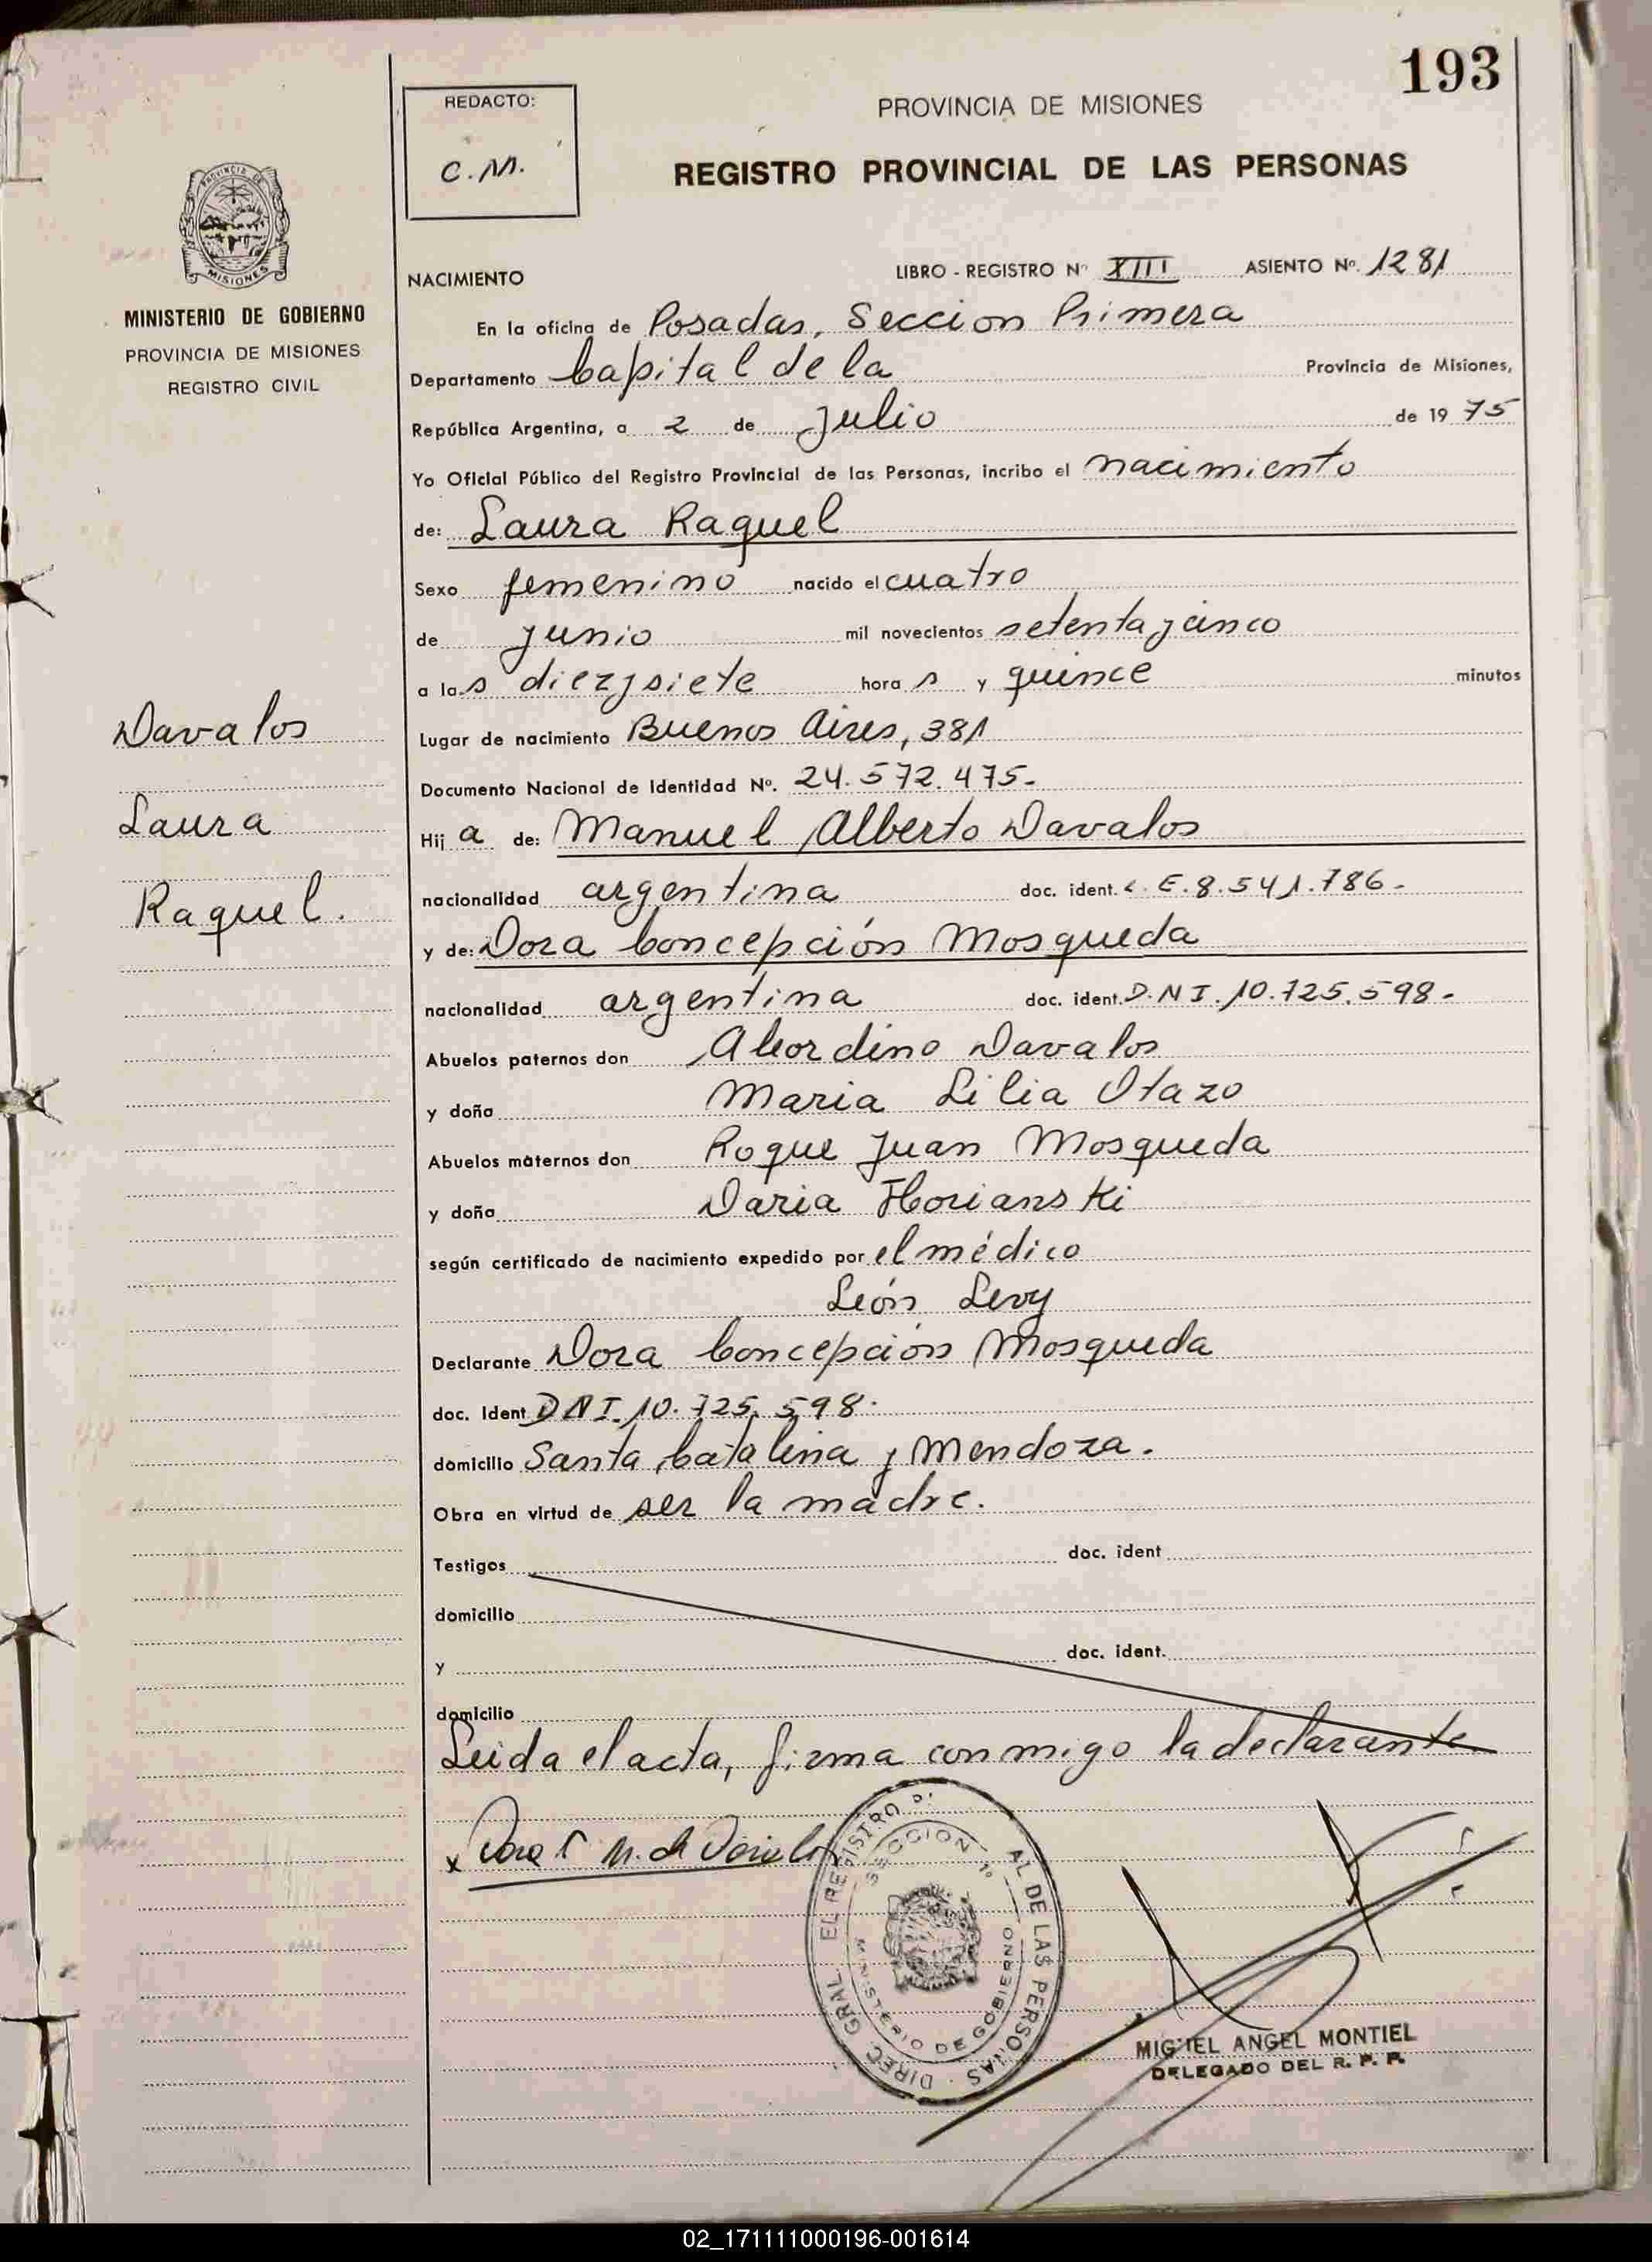 193
REDACTO:
C.M.
PROVINCIA DE MISIONES
REGISTRO PROVINCIAL DE LAS PERSONAS
MISIONES
MINISTERIO DE GOBIERNO
PROVINCIA DE MISIONES
REGISTRO CIVIL
NACIMIENTO LIBRO - REGISTRO Nº XIII ASIENTO Nº. 1281
En la oficina de Posadas, Seccion Primera
Departamento Capital de la Provincia de Misiones,
República Argentina, a 2 de Julio de 19 75
Yo Oficial Público del Registro Provincial de las Personas, incribo el nacimiento
de: Laura Raquel
Sexo femenino nacido el cuatro
de junio mil novecientos setenta y cinco
a las diez y siete hora s y quince minutos
Lugar de nacimiento Buenos Aires, 381
Documento Nacional de Identidad Nº. 24.572.475-
Hij a de: Manuel Alberto Davalos
nacionalidad argentina doc. ident. L.E.8.541.786-
y de: Dora Concepción Mosqueda
nacionalidad argentina doc. ident. D.N I. 10.725.598-
Abuelos paternos don Davalos
y doña Maria Lilia Otazo
Abuelos maternos don Roque Juan Mosqueda
y doña Daria Horianski
según certificado de nacimiento expedido por el médico
León Levy
Declarante Dora Concepción Mosqueda
doc. Ident D N I. 10.725.598.
domicilio Santa Catalina y Mendoza.
Obra en virtud de ser la madre.
Testigos doc. ident
domicilio
y doc. ident.
domicilio
Leida el acta, firma conmigo la declarante
Davalos
Laura
Raquel.
x Dora C M. de Davalos
DIREC. GRAL. DE LAS PERSONAS
SECCION 1º
MINISTERIO DE GOBIERNO
MIGUEL ANGEL MONTIEL
DELEGADO DEL R. P. P.
02_171111000196-001614